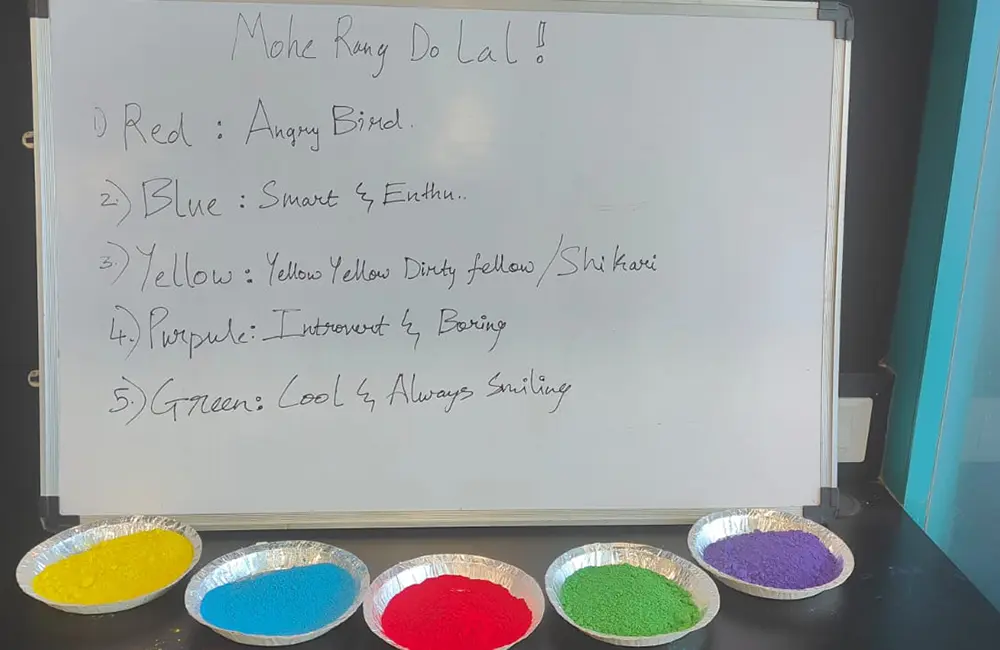 Mohe Rang Do Lal!
1) Red : Angry Bird.
2.) Blue : Smart & Enthu..
3.) Yellow : Yellow Yellow Dirty fellow/Shikari
4.) Purpule: Introvert & Boring
5.) Green: Cool & Always Smiling